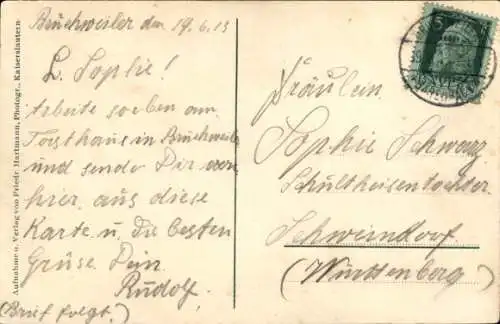 Bruchweiler den 19.6.13
L. Sophie!
Arbeite soeben am
Forsthaus in Bruchweiler
und sende Dir von
hier aus diese
Karte u. Die besten
Grüse. Dein
Rudolf.
(Brief folgt.)
Fräulein
Sophie Schwarz
Schultheisentochter
Schwendorf
(Württenberg)
Aufnahme u. Verlag von Friedr. Hartmann, Photogr., Kaiserslautern
5